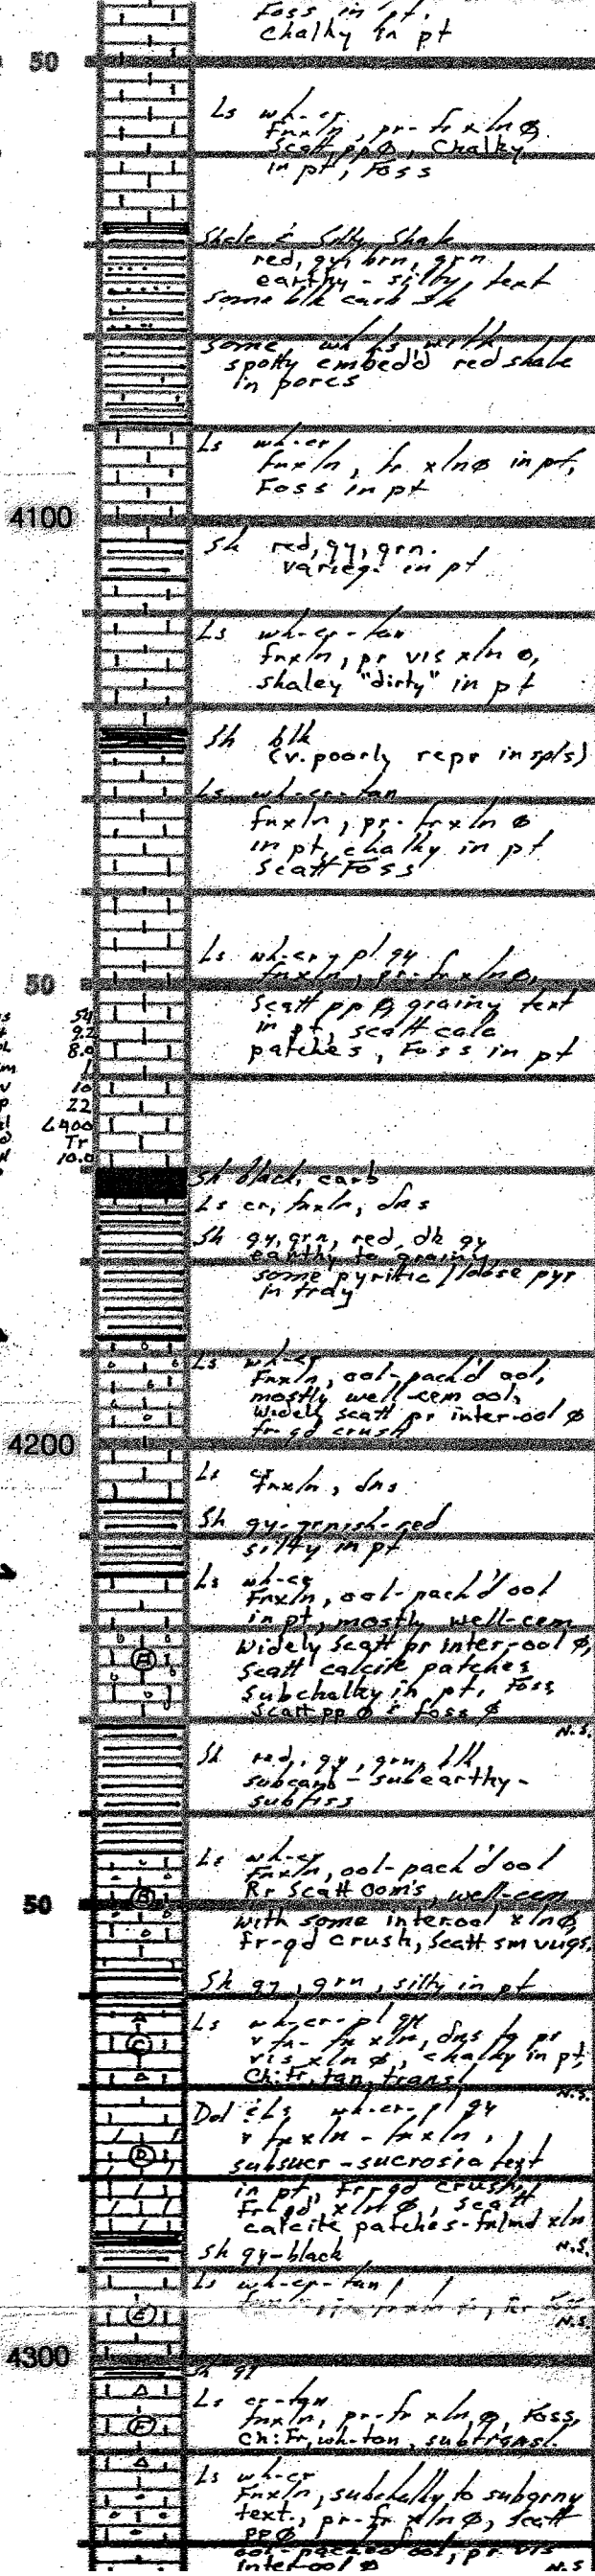 Foss in pt,
Chalky in pt
50
Ls wh-cr
fnxln, pr-fr xln ø,
Scatt pp ø, Chalky
in pt, Foss
Shale & Silty Shale
red, gy, brn, grn
earthy - silty text
some blk carb sh
some wh Ls with
spotty embedd'd red shale
in pores
Ls wh-cr
fnxln, fr xln ø in pt,
Foss in pt
4100
Sh red, gy, grn.
varieg. in pt
Ls wh-cr-tan
fnxln, pr vis xln ø,
shaley "dirty" in pt
Sh blk
(v. poorly repr in spls)
Ls wh-cr-tan
fnxln, pr-fr xln ø
in pt, chalky in pt
Scatt Foss
Ls wh-cr, pl gy
fnxln, pr-fr xln ø,
50
Scatt pp ø, grainy text
in pt, scatt calc
patches, Foss in pt
54
9.2
8.0
1
10
22
<400
Tr
10.0
Sh black, carb
Ls cr, fnxln, dns
Sh gy, grn, red, dk gy
earthy to grainy
some pyritic / loose pyr
in tray
Ls wh-cr
Fnxln, ool-pack'd ool,
mostly well-cem ool,
Widely scatt pr inter-ool ø
fr-gd crush
4200
Ls cr
fnxln, dns
Sh gy-grnish-red
silty in pt
Ls wh-cr
Fnxln, ool-pack'd ool
in pt, mostly well-cem
Widely Scatt pr inter-ool ø,
Scatt calcite patches
Subchalky in pt, Foss
Scatt pp ø & foss ø
N.S.
Sh red, gy, grn, blk
subcarb - subearthy -
subfiss
Ls wh-cr
Fnxln, ool-pack'd ool
50
Rr Scatt oom's, well-cem
with some interool xln ø,
fr-gd crush, scatt sm vugs.
Sh gy, grn, silty in pt
C
Ls wh-cr-pl gy
v fn-fn xln, dns to pr
vis xln ø, chalky in pt,
Ch: Fr, tan, transl
N.S.
Dol & Ls wh-cr-pl gy
v fnxln - fnxln,
D
subsucr - sucrosic text
in pt, Fr-gd crush,
fr-gd xln ø, scatt
calcite patches-fn/md xln
Sh gy-black
N.S.
Ls wh-cr-tan
E
N.S.
4300
Sh gy
Ls cr-tan
F
fnxln, pr-fr xln ø, Foss,
Ch: Fr, wh-tan, subtransl.
Ls wh-cr
Fnxln, subchalky to subgrny
text, pr-fr xln ø, scatt
pp ø
ool-packed ool, pr vis
inter-ool ø
N.S